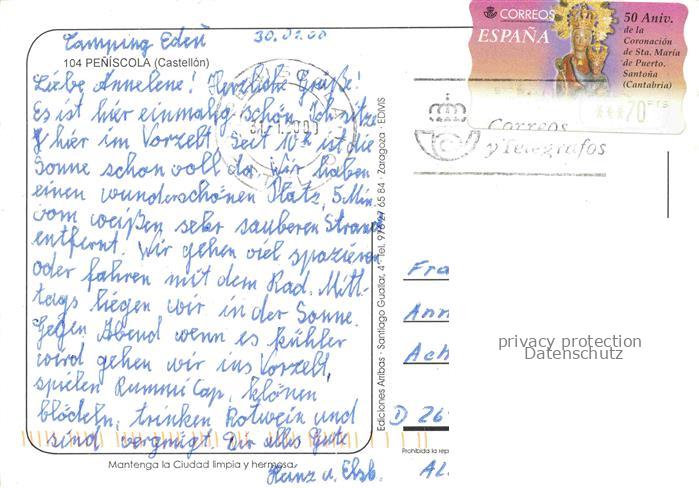 Camping Eden 30.01.00
104 PEÑÍSCOLA (Castellón)
Liebe Annelene! Herzliche Grüße!
Es ist hier einmalig schön. Ich sitze
hier im Vorzelt. Seit 10ʰ ist die
Sonne schon voll da. Wir haben
einen wunderschönen Platz, 5 Min.
vom weißen sehr sauberen Strand
entfernt. Wir gehen viel spazieren
oder fahren mit dem Rad. Mit-
tags liegen wir in der Sonne.
Gegen Abend wenn es kühler
wird gehen wir ins Vorzelt,
spielen Rummi Cap, klönen
blödeln, trinken Rotwein und
sind vergnügt. Dir alles Gute
Heinz u. Elsb.
Mantenga la Ciudad limpia y hermosa
Ediciones Arribas - Santiago Guallar, 4 - Tel. 976 27 65 84 - Zaragoza - EDIVIS
CORREOS
ESPAÑA
50 Aniv.
de la
Coronación
de Sta. María
de Puerto.
Santoña
(Cantabria)
***70 PTS
Correos
y Telégrafos
Fra
Ann
Ach
D 26
Prohibida la rep
AL
privacy protection
Datenschutz